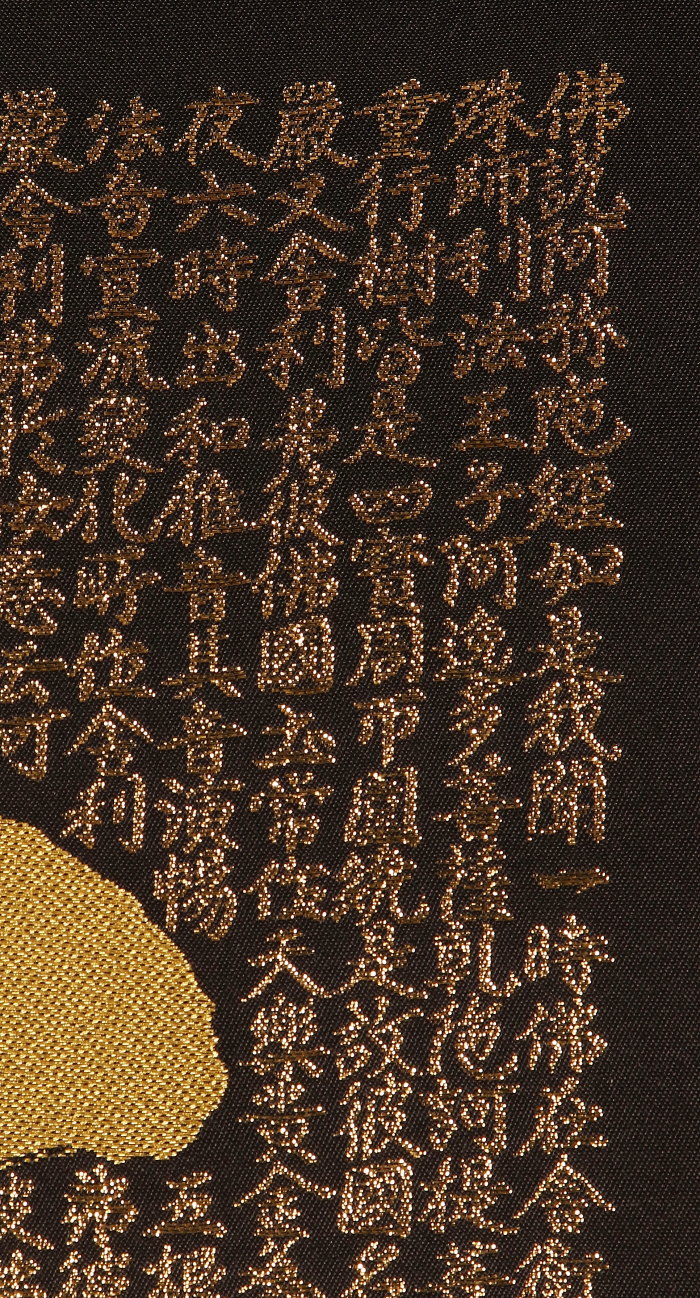 佛説阿弥陀經如是我聞一時佛在舍衛
殊師利法王子阿逸多菩薩乾陀訶提菩
重行樹皆是四寶周帀圍繞是故彼國名
嚴又舍利弗彼佛國土常作天樂黄金為
夜六時出和雅音其音演暢五根
法音宣流變化所作舍利弗彼
嚴舍利弗於汝意云何彼佛